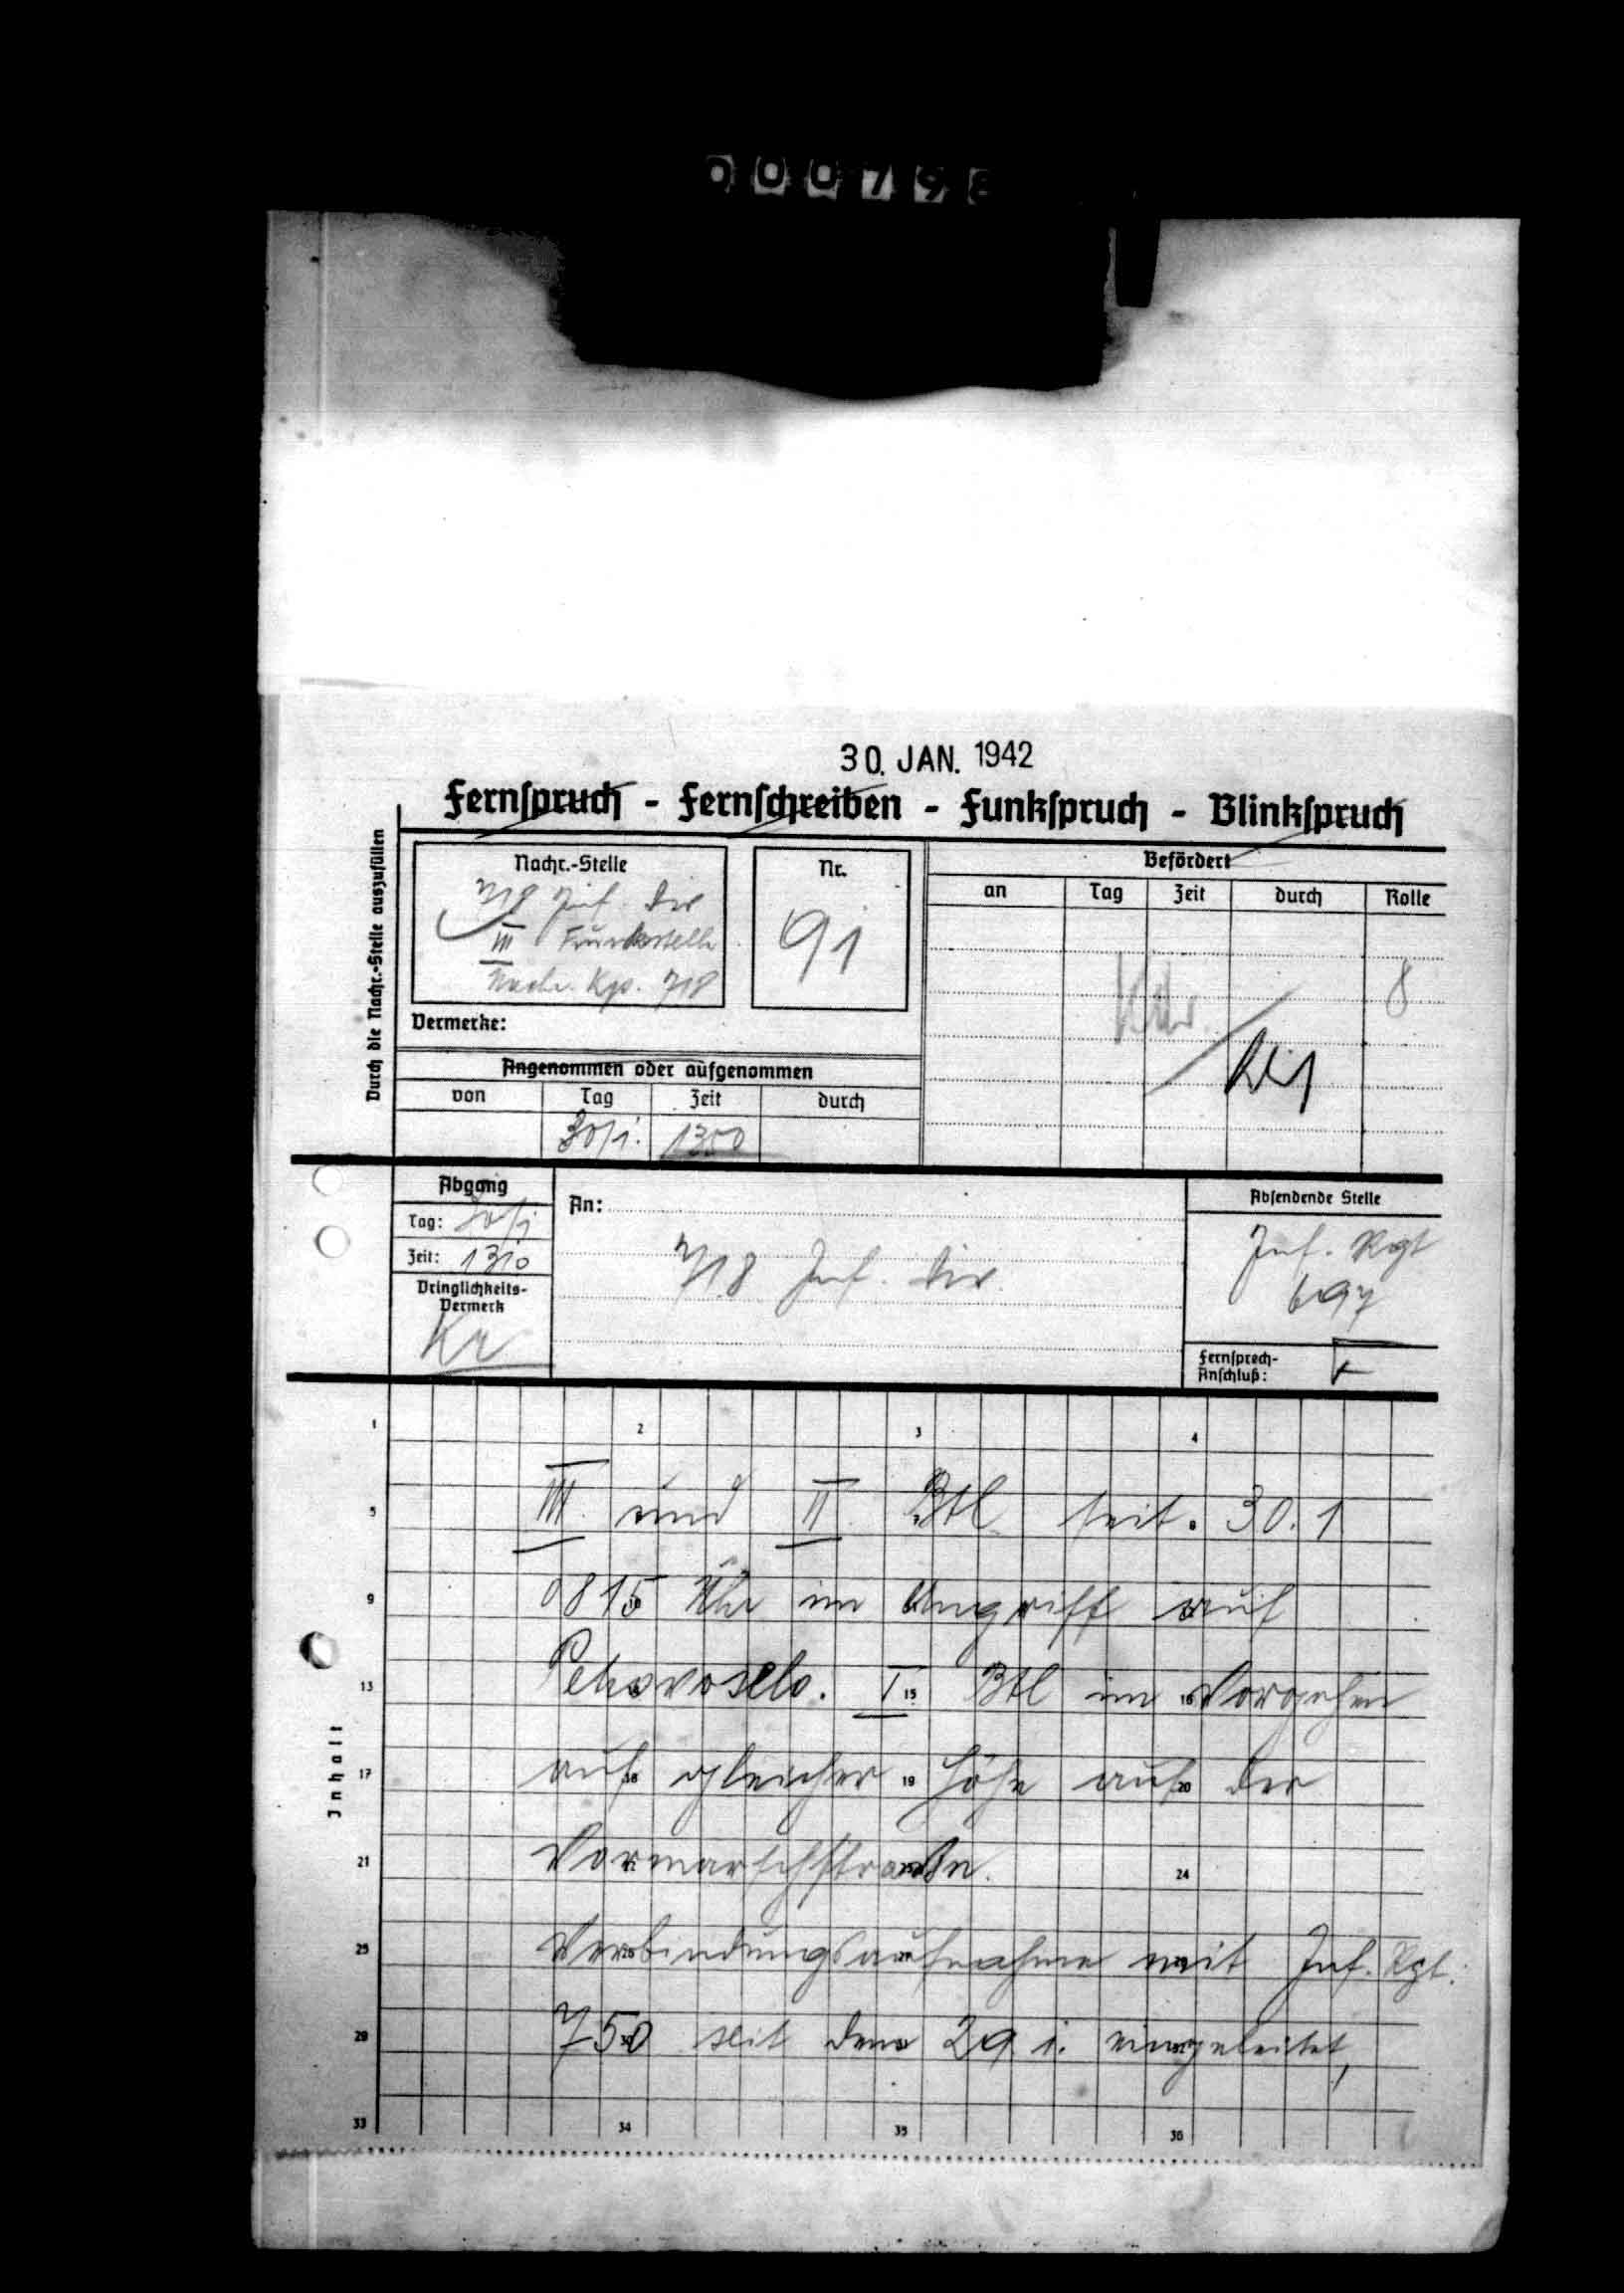 000798
30. JAN. 1942
Fernspruch - Fernschreiben - Funkspruch - Blinkspruch
Durch die Nachr.-Stelle auszufüllen
Nachr.-Stelle
718 Inf. Div
III Funkstelle
Nachr. Kp. 718
Nr.
91
Befördert
an Tag Zeit durch Rolle
8
Vermerke:
Angenommen oder aufgenommen
von Tag Zeit durch
30/1. 1350
Abgang
Tag: 30/1
Zeit: 1310
Dringlichkeits-
Vermerk
Kr
An:
718 Inf. Div.
Absendende Stelle
Inf. Rgt
697
Fernsprech-
Anschluß:
Inhalt
1 2 3 4
III. und II. Btl. seit 30.1
5
0815 Uhr im Angriff auf
9
Petrovoselo. I. Btl im Vorgehen
13 15 16
auf gleicher Höhe auf der
17 18 19 20
Vormarschstraße.
21 24
Verbindungsaufnahme mit Inf. Rgt.
25
750 seit dem 29.1. eingeleitet,
29
33 34 35 36